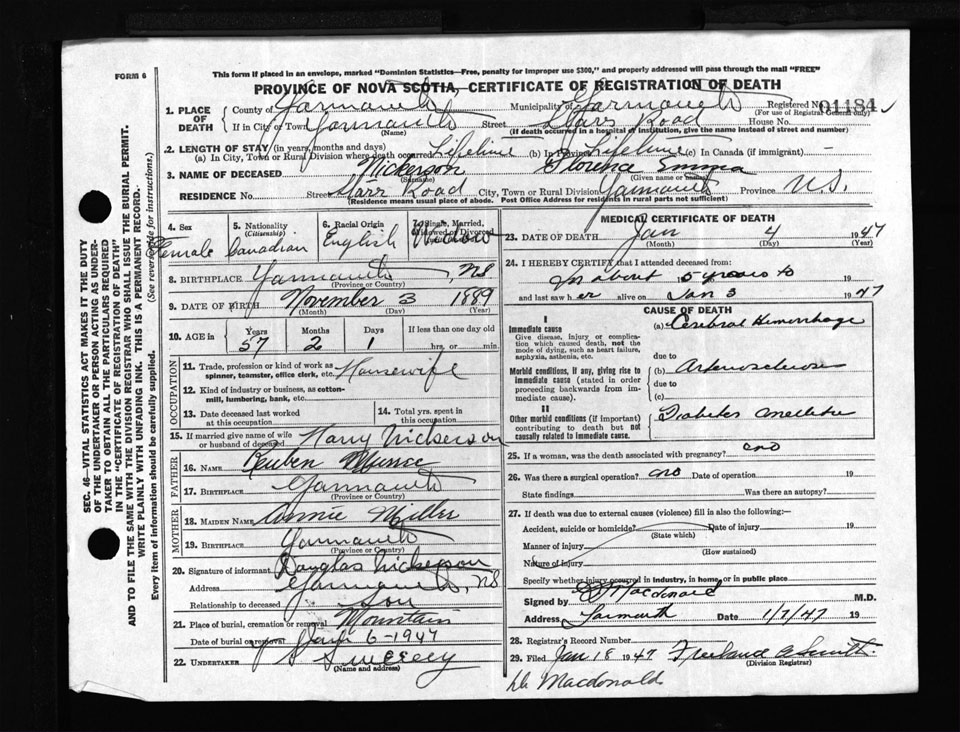 FORM 6
This form if placed in an envelope, marked "Dominion Statistics—Free, penalty for improper use $300," and properly addressed will pass through the mail "FREE"
PROVINCE OF NOVA SCOTIA—CERTIFICATE OF REGISTRATION OF DEATH
1. PLACE OF DEATH
County of Yarmouth Municipality of Yarmouth Registered No. 01184
(For use of Registrar General only)
If in City or Town Yarmouth Street Starrs Road House No.
(Name) (If death occurred in a hospital or institution, give the name instead of street and number)
2. LENGTH OF STAY (in years, months and days)
(a) In City, Town or Rural Division where death occurred Lifetime (b) In Province Lifetime (c) In Canada (if immigrant) —
3. NAME OF DECEASED Nickerson Florence Emma
(Surname) (Given name or names)
RESIDENCE No. Street Starr Road City, Town or Rural Division Yarmouth Province N.S.
(Residence means usual place of abode. Post Office Address for residents in rural parts not sufficient)
4. Sex
Female
5. Nationality
(Citizenship)
Canadian
6. Racial Origin
English
7. Single, Married, Widowed or Divorced
Widow
8. BIRTHPLACE Yarmouth, NS
(Province or Country)
9. DATE OF BIRTH November 3 1889
(Month) (Day) (Year)
10. AGE
Years Months Days If less than one day old
57 2 1 hrs. or min.
OCCUPATION
11. Trade, profession or kind of work as spinner, teamster, office clerk, etc. Housewife
12. Kind of industry or business, as cotton-mill, lumbering, bank, etc.
13. Date deceased last worked at this occupation
14. Total yrs. spent in this occupation
15. If married give name of wife or husband of deceased Harry Nickerson
FATHER
16. NAME Reuben
17. BIRTHPLACE Yarmouth
(Province or Country)
MOTHER
18. MAIDEN NAME Annie Miller
19. BIRTHPLACE Yarmouth
(Province or Country)
20. Signature of informant Douglas Nickerson
Address Yarmouth, NS
Relationship to deceased Son
21. Place of burial, cremation or removal Mountain
Date of burial or removal Jan 6-1947
22. UNDERTAKER Sweeney
(Name and address)
MEDICAL CERTIFICATE OF DEATH
23. DATE OF DEATH Jan 4 1947
(Month) (Day) (Year)
24. I HEREBY CERTIFY that I attended deceased from:
In about 5 years to 19
and last saw her alive on Jan 3 1947
CAUSE OF DEATH
I
Immediate cause
Give disease, injury or complication which caused death, not the mode of dying, such as heart failure, asphyxia, asthenia, etc.
(a) Cerebral Hemorrhage
due to
Morbid conditions, if any, giving rise to immediate cause (stated in order proceeding backwards from immediate cause).
(b) Arteriosclerosis
due to
(c)
II
Other morbid conditions (if important) contributing to death but not causally related to immediate cause.
Diabetes Mellitus
25. If a woman, was the death associated with pregnancy? no
26. Was there a surgical operation? no Date of operation 19
State findings Was there an autopsy?
27. If death was due to external causes (violence) fill in also the following:—
Accident, suicide or homicide? Date of injury 19
(State which)
Manner of injury
(How sustained)
Nature of injury
Specify whether injury occurred in industry, in home, or in public place
Signed by Macdonald M.D.
Address Yarmouth Date 1/7/47 19
28. Registrar's Record Number
29. Filed Jan 18 1947 Smith
(Division Registrar)
Dr Macdonald
SEC. 46—VITAL STATISTICS ACT MAKES IT THE DUTY
OF THE UNDERTAKER OR PERSON ACTING AS UNDER-
TAKER TO OBTAIN ALL THE PARTICULARS REQUIRED
IN THE "CERTIFICATE OF REGISTRATION OF DEATH"
AND TO FILE THE SAME WITH THE DIVISION REGISTRAR WHO SHALL ISSUE THE BURIAL PERMIT.
WRITE PLAINLY WITH UNFADING INK. THIS IS A PERMANENT RECORD.
Every item of information should be carefully supplied. (See reverse side for instructions.)